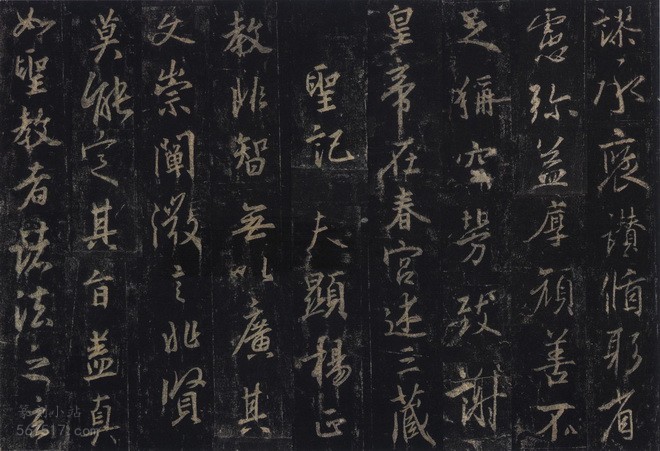 謬承褒讚循躬省
慮弥益厚顔善不
足称空勞致謝
皇帝在春宮述三藏
聖記 夫顯楊正
教非智無以廣其
文崇闡微言非賢
莫能定其旨盖真
如聖教者諸法之玄